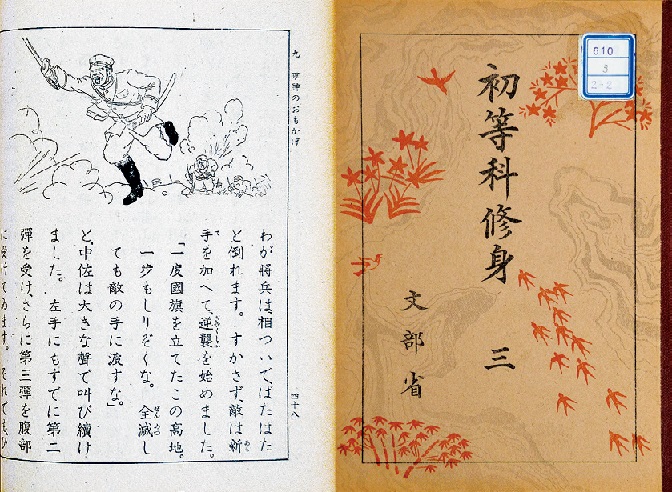 初等科修身 三
文部省
九 軍神のおもかげ
四十八
わが将兵は、相ついでばたばた
と倒れます。すかさず、敵は新
手を加へて、逆襲を始めました。
「一度國旗を立てたこの高地。
一歩もしりぞくな。全滅し
ても敵の手に渡すな。」
と、中佐は大きな聲で叫び續け
ました。左手にもすでに第二
彈を受け、さらに第三彈を腹部